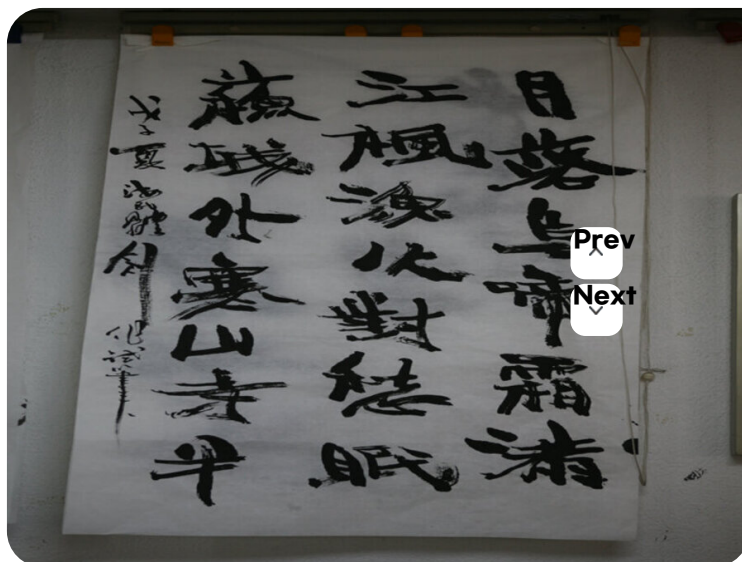 月落烏啼霜滿
江楓漁火對愁眠
蘇城外寒山寺半
夏
Prev
Next